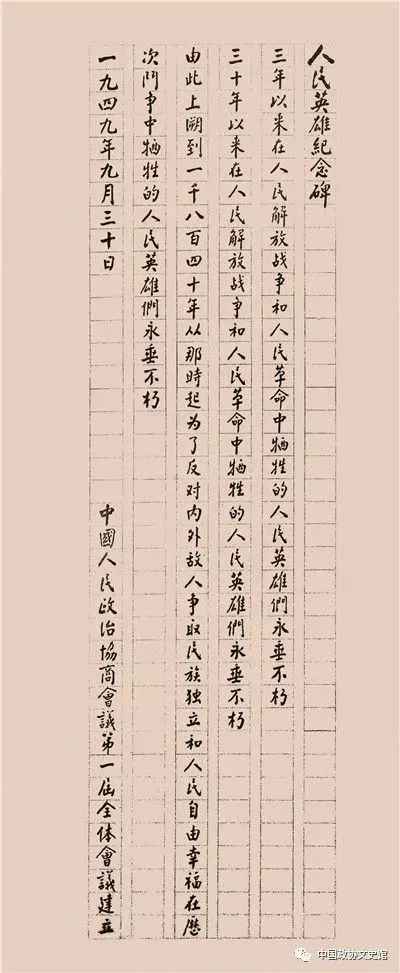 人民英雄紀念碑
三年以来在人民解放战争和人民革命中牺牲的人民英雄們永垂不朽
三十年以来在人民解放战争和人民革命中牺牲的人民英雄們永垂不朽
由此上溯到一千八百四十年从那時起为了反对内外敌人争取民族独立和人民自由幸福在歷
次鬥争中牺牲的人民英雄們永垂不朽
一九四九年九月三十日 中國人民政治協商會議第一届全体會議建立
中国政协文史馆